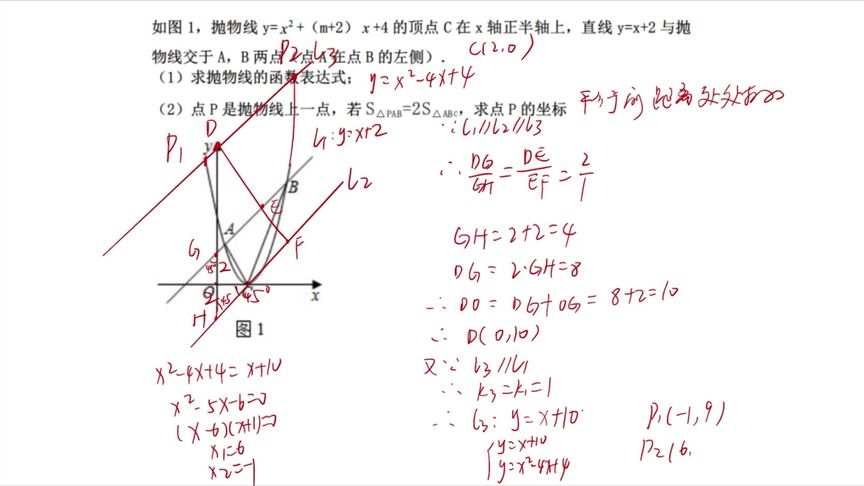 如图 1，抛物线 y=x²+（m+2）x+4 的顶点 C 在 x 轴正半轴上，直线 y=x+2 与抛
物线交于 A，B 两点（点 A 在点 B 的左侧）.
C(2,0)
（1）求抛物线的函数表达式；
y=x²-4x+4
（2）点 P 是抛物线上一点，若 S△PAB=2S△ABC，求点 P 的坐标
平行 距离处处
P2
l3
P1
D
y
l1:y=x+2
l2
B
E
A
G
F
45°
2
O
2
45°
45°
x
H
图 1
∵l1//l2//l3
∴DG/GH=DE/EF=2/1
GH=2+2=4
DG=2·GH=8
∴DO=DG+OG=8+2=10
∴D(0,10)
又∵l3//l1
∴K3=K1=1
∴l3:y=x+10
y=x+10
y=x²-4x+4
P1(-1,9)
P2(6,
x²-4x+4=x+10
x²-5x-6=0
(x-6)(x+1)=0
x1=6
x2=-1